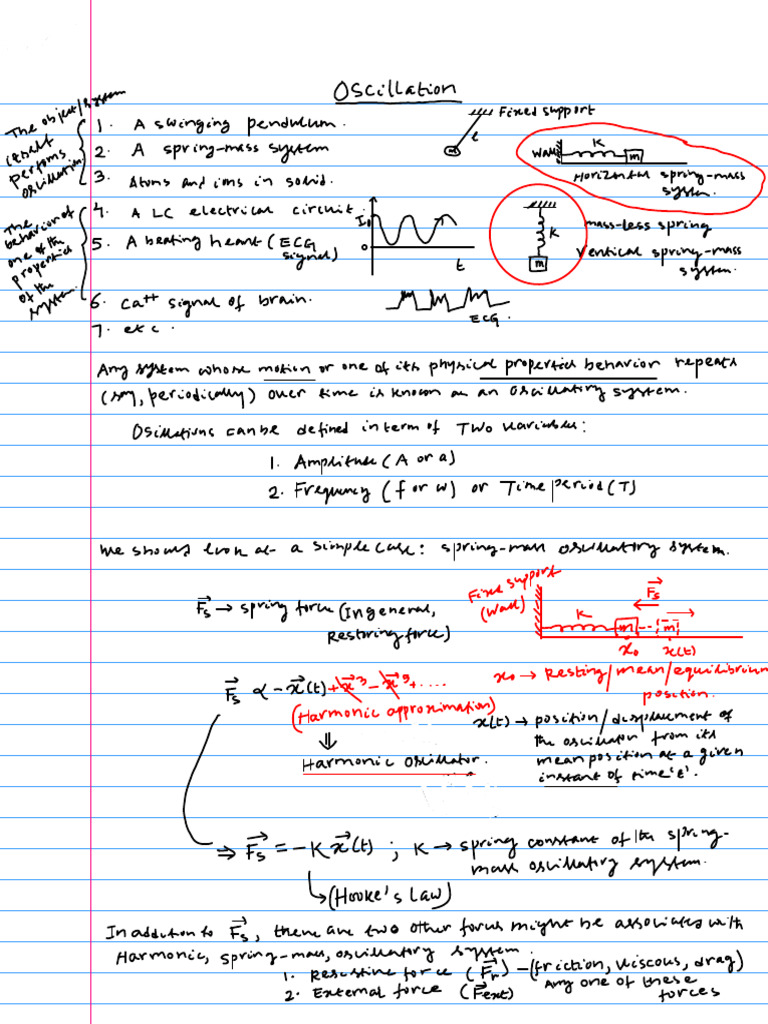 Oscillation
The object/system
itself
performs
oscillation
1. A swinging pendulum.
2. A spring-mass system
3. Atoms and ions in solid.
Fixed support
l
m
Wall
K
m
Horizontal spring-mass
system.
The
behavior of
one of its
properties
of the
system.
4. A LC electrical circuit.
5. A beating heart (ECG
signal)
6. Ca++ signal of brain.
7. etc.
I0
0
t
ECG.
K
m
mass-less spring
Vertical spring-mass
system.
Any system whose motion or one of its physical properties behavior repeats
(say, periodically) over time is known as an oscillating system.
Oscillations can be defined in term of Two variables:
1. Amplitude (A or a)
2. Frequency (f or ω) or Time period (T)
We should look at a simple case: spring-mass oscillatory system.
Fixed support
(Wall)
K
m
m
F⃗s
x0
x(t)
F⃗s → spring force (In general,
Restoring force)
x0 → Resting/mean/equilibrium
position.
F⃗s ∝ -x⃗(t) + x⃗³ - x⃗⁵ + ....
(Harmonic approximation)
⇓
Harmonic oscillator.
x(t) → position/displacement of
the oscillator from its
mean position at a given
instant of time 't'.
⇒ F⃗s = -K x⃗(t) ; K → spring constant of the spring-
mass oscillatory system.
↳ (Hooke's Law)
In addition to F⃗s, there are two other forces might be associates with
Harmonic, spring-mass, oscillatory system.
1. Resistive force (F⃗r) - (friction, viscous, drag)
Any one of these
forces
2. External force (F⃗ext)